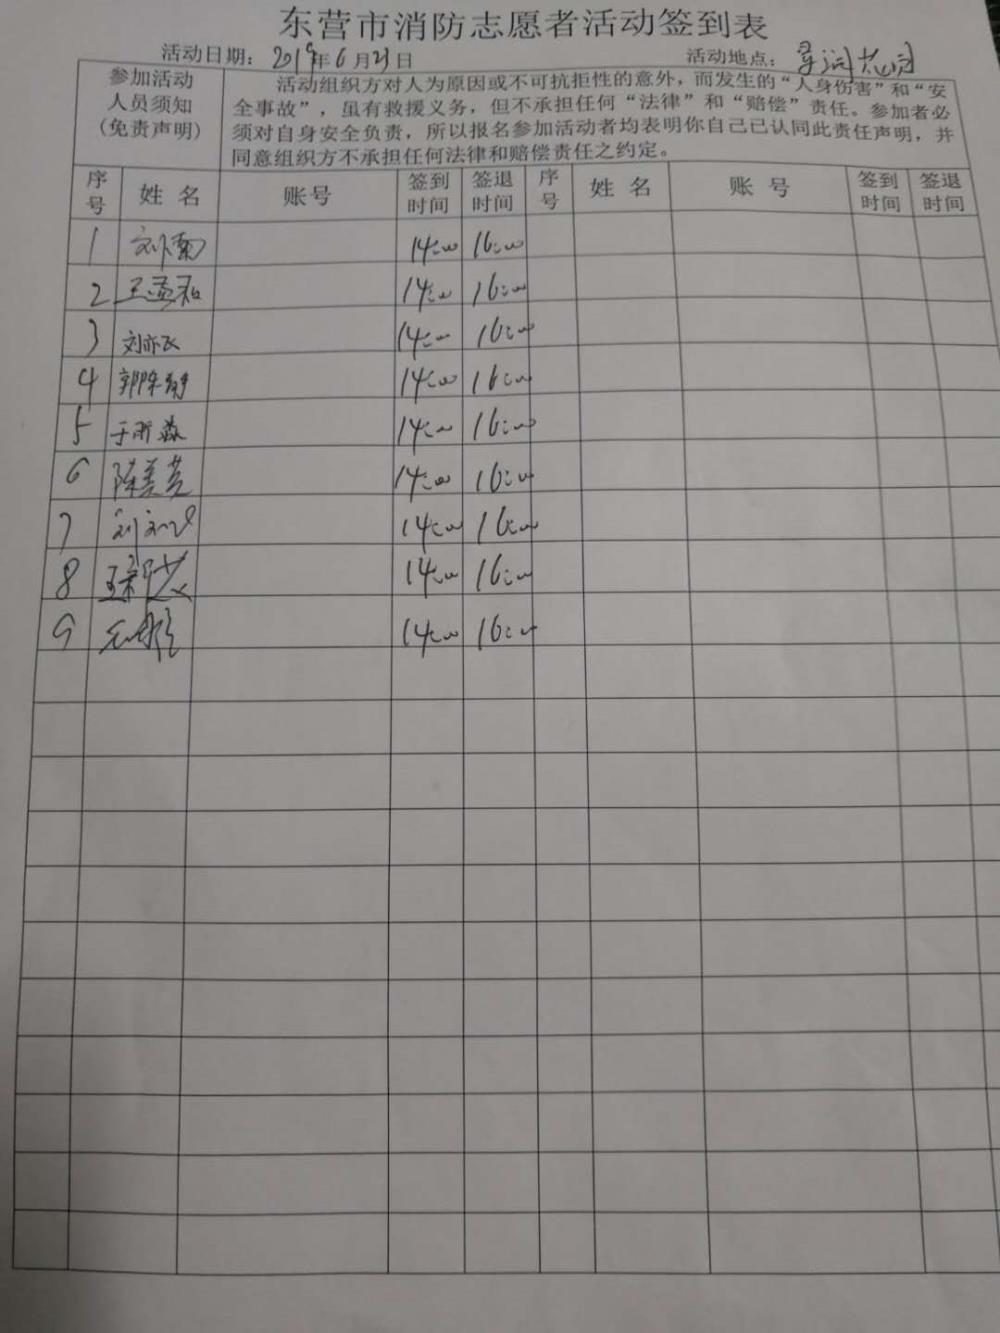 东营市消防志愿者活动签到表
活动日期：2019年6月21日 活动地点：
参加活动
人员须知
(免责声明)
活动组织方对人为原因或不可抗拒性的意外，而发生的“人身伤害”和“安
全事故”，虽有救援义务，但不承担任何“法律”和“赔偿”责任。参加者必
须对自身安全负责，所以报名参加活动者均表明你自己已认同此责任声明，并
同意组织方不承担任何法律和赔偿责任之约定。
序号 姓 名 账号 签到时间 签退时间 序号 姓 名 账 号 签到时间 签退时间
1 14:00 16:00
2 王孟和 14:00 16:00
3 刘亦飞 14:00 16:00
4 14:00 16:00
5 14:00 16:00
6 陈美芸 14:00 16:00
7 14:00 16:00
8 14:00 16:00
9 14:00 16:00